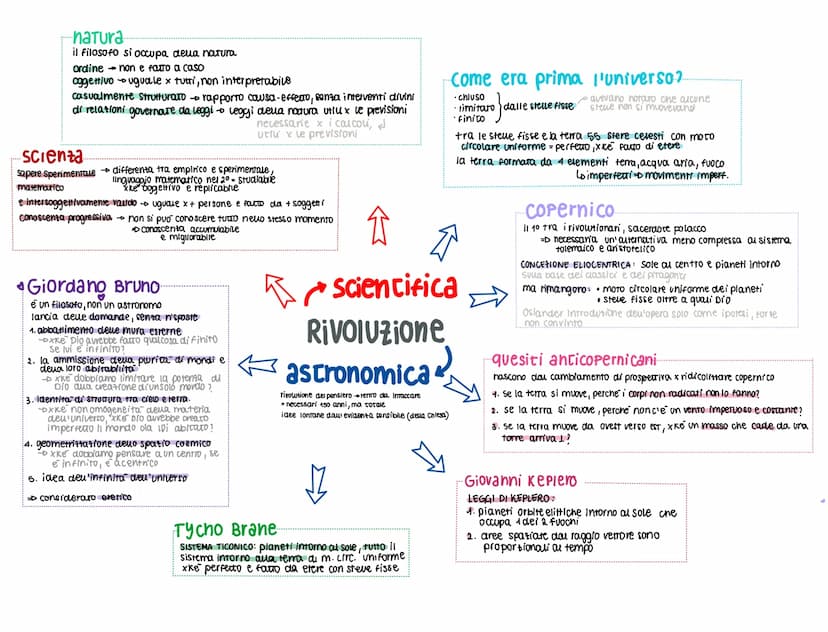 natura
il filosofo si occupa della natura
ordine → non è fatto a caso
oggettivo → uguale x tutti, non interpretabile
casualmente strutturato → rapporto causa-effetto, senza interventi divini
di relazioni governate da leggi → leggi della natura utili x le previsioni
necessarie x i calcoli,
utili x le previsioni
Come era prima l'universo?
· chiuso
· limitato
· finito
dalle stelle fisse
avevano notato che alcune
stelle non si muovevano
tra le stelle fisse e la terra 55 sfere celesti con moto
circolare uniforme = perfetto, xkè fatto di etere
la terra formata da 4 elementi terra, acqua aria, fuoco
↳ imperfetti → movimenti imperf.
scienza
sapere sperimentale → differenza tra empirico e sperimentale,
matematico
linguaggio matematico nel 2° = studiabile
xkè oggettivo e replicabile
e intersoggettivamente valido → uguale x + persone e fatto da + soggetti
conoscenza progressiva → non si può conoscere tutto nello stesso momento
⇒ conoscenza accumulabile
e migliorabile
Copernico
il 1° tra i rivoluzionari, sacerdote polacco
⇒ necessaria un'alternativa meno complessa al sistema
tolemaico e aristotelico
CONCEZIONE ELIOCENTRICA: sole al centro e pianeti intorno
sulla base dei classici e dei pitagorici
ma rimangono: • moto circolare uniforme dei pianeti
• stelle fisse oltre a quali Dio
Osiander introduzione dell'opera solo come ipotesi, forse
non convinto
Giordano Bruno
è un filosofo, non un astronomo
lancia delle domande, senza risposte
1. abbattimento delle mura esterne
→ xkè Dio avrebbe fatto qualcosa di finito
se lui è infinito?
2. la ammissione della pluralità di mondi e
della loro abitabilità
→ xkè dobbiamo limitare la potenza di
Dio alla creazione di un solo mondo?
3. identità di struttura tra cielo e terra
→ xkè non omogeneità della materia
dell'universo, xkè Dio avrebbe creato
imperfetto il mondo da lui abitato?
4. geometrizzazione dello spazio cosmico
→ xkè dobbiamo pensare a un centro, se
è infinito, è acentrico
5. idea dell'infinità dell'universo
⇒ considerato eretico
scientifica
Rivoluzione
astronomica
rivoluzione del pensiero → tento da intaccare
• necessari 150 anni, ma totale
idee lontane dall'evidenza sensibile (della Chiesa)
quesiti anticopernicani
nascono dal cambiamento di prospettiva x ridicolizzare copernico
1. se la terra si muove, perchè i corpi non radicati non lo fanno?
2. se la terra si muove, perchè non c'è un vento impetuoso e costante?
3. se la terra muove da ovest verso est, xkè un masso che cade da una
torre arriva ⊥?
Giovanni Keplero
LEGGI DI KEPLERO:
1. pianeti orbite ellittiche intorno al sole che
occupa 1 dei 2 fuochi
2. aree spaziate dal raggio vettore sono
proporzionali al tempo
Tycho Brane
SISTEMA TICONICO: pianeti intorno al sole, tutto il
sistema intorno alla terra di m. circ. uniforme
xkè perfetto e fatto da etere con stelle fisse